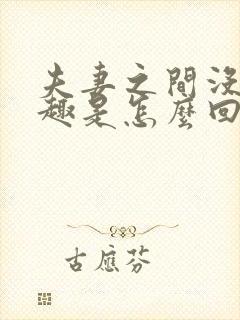 夫妻之間沒
趣是怎麼回
古應芬